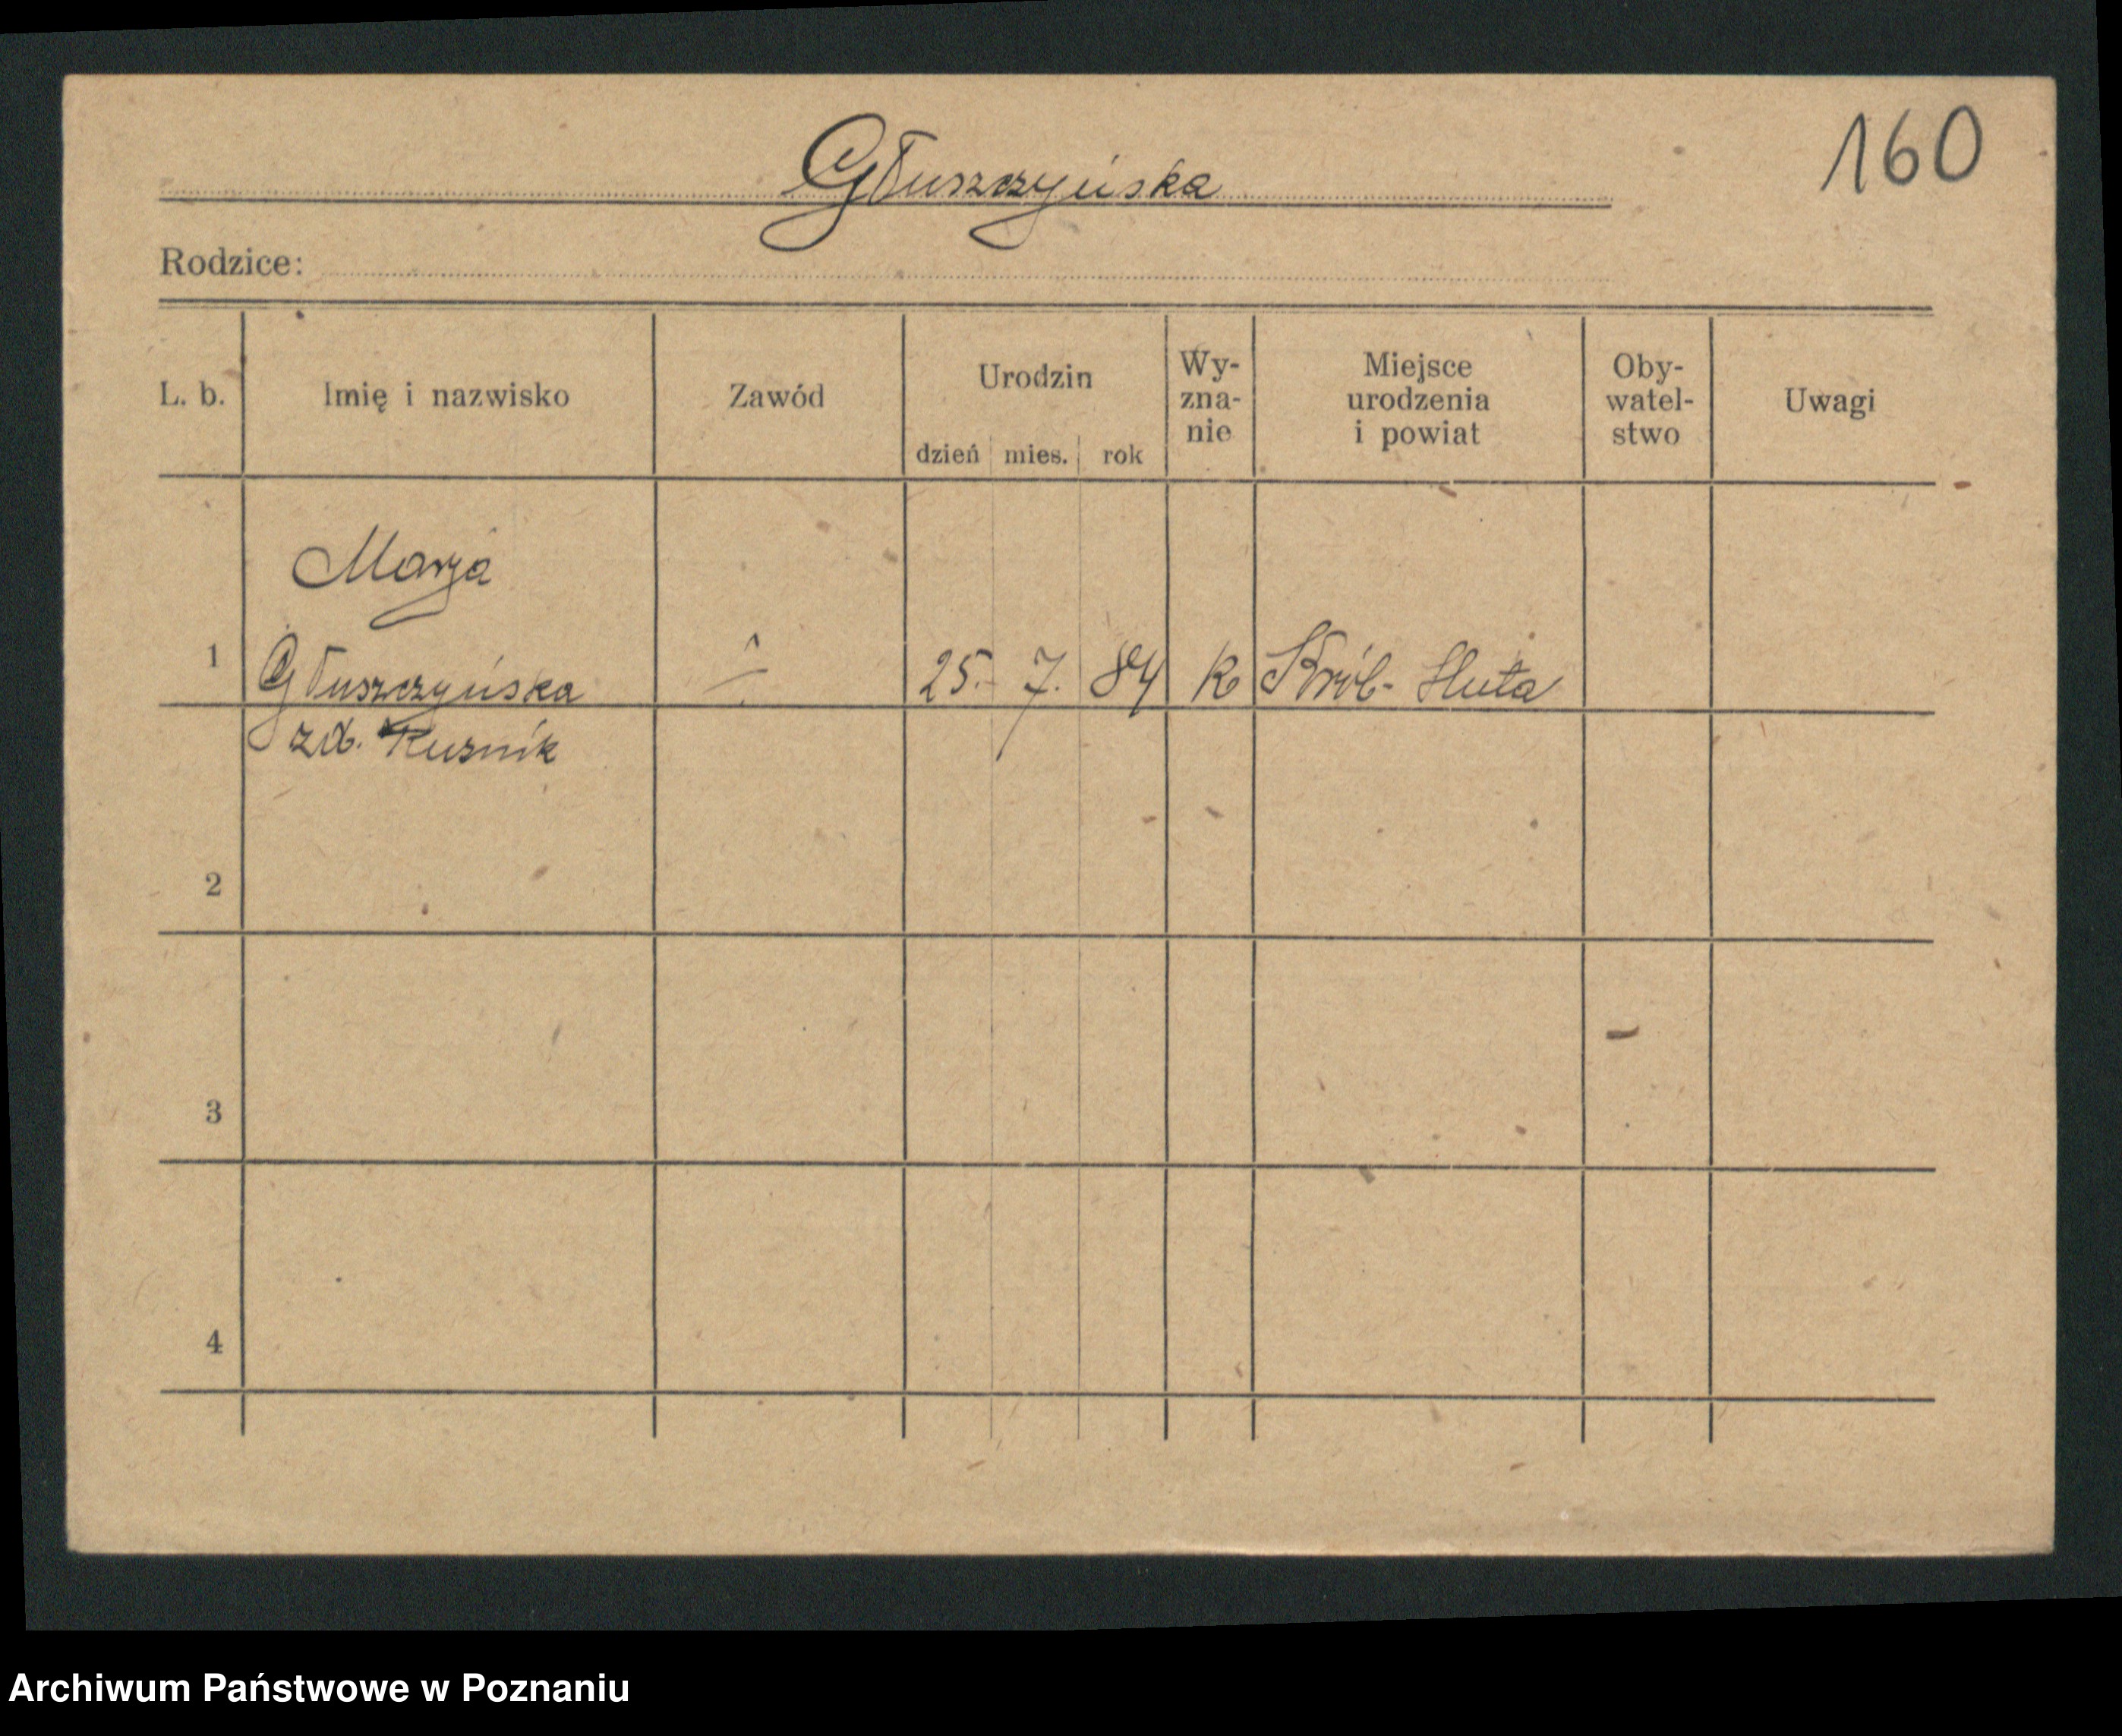 160
Głuszczyńska
Rodzice:
L. b.
Imię i nazwisko
Zawód
Urodzin
dzień mies. rok
Wy-
zna-
nie
Miejsce
urodzenia
i powiat
Oby-
watel-
stwo
Uwagi
Marja
1 Głuszczyńska 25. 7. 84 k Król. Huta
zd. Kusnik
2
3
4
Archiwum Państwowe w Poznaniu